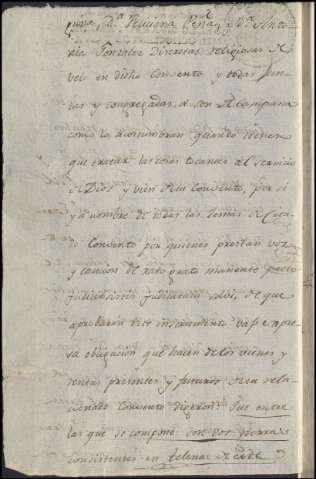 pura, D.ª Feliciana Perez y D.ª Anto
nia Gonzalez Discretas religiosas de
velo en dicho Convento y todas jun
tas y congregadas a son de Campana
como lo acostumbran quando tienen
que tratar las cosas tocantes al servicio
de Dios y vien de su Convento, por si
y a nombre de todas las demas de este
de Convento por quienes prestan voz
y caucion de rato grato manente pacto
judicatum solvi, de que
aprobaran este instrumento vajo expre
sa obligacion que hacen de los vienes y
rentas presentes y futuros de su rela
cionado Convento dixeron: Que entre
las que se compone son dos piezas
consistentes en